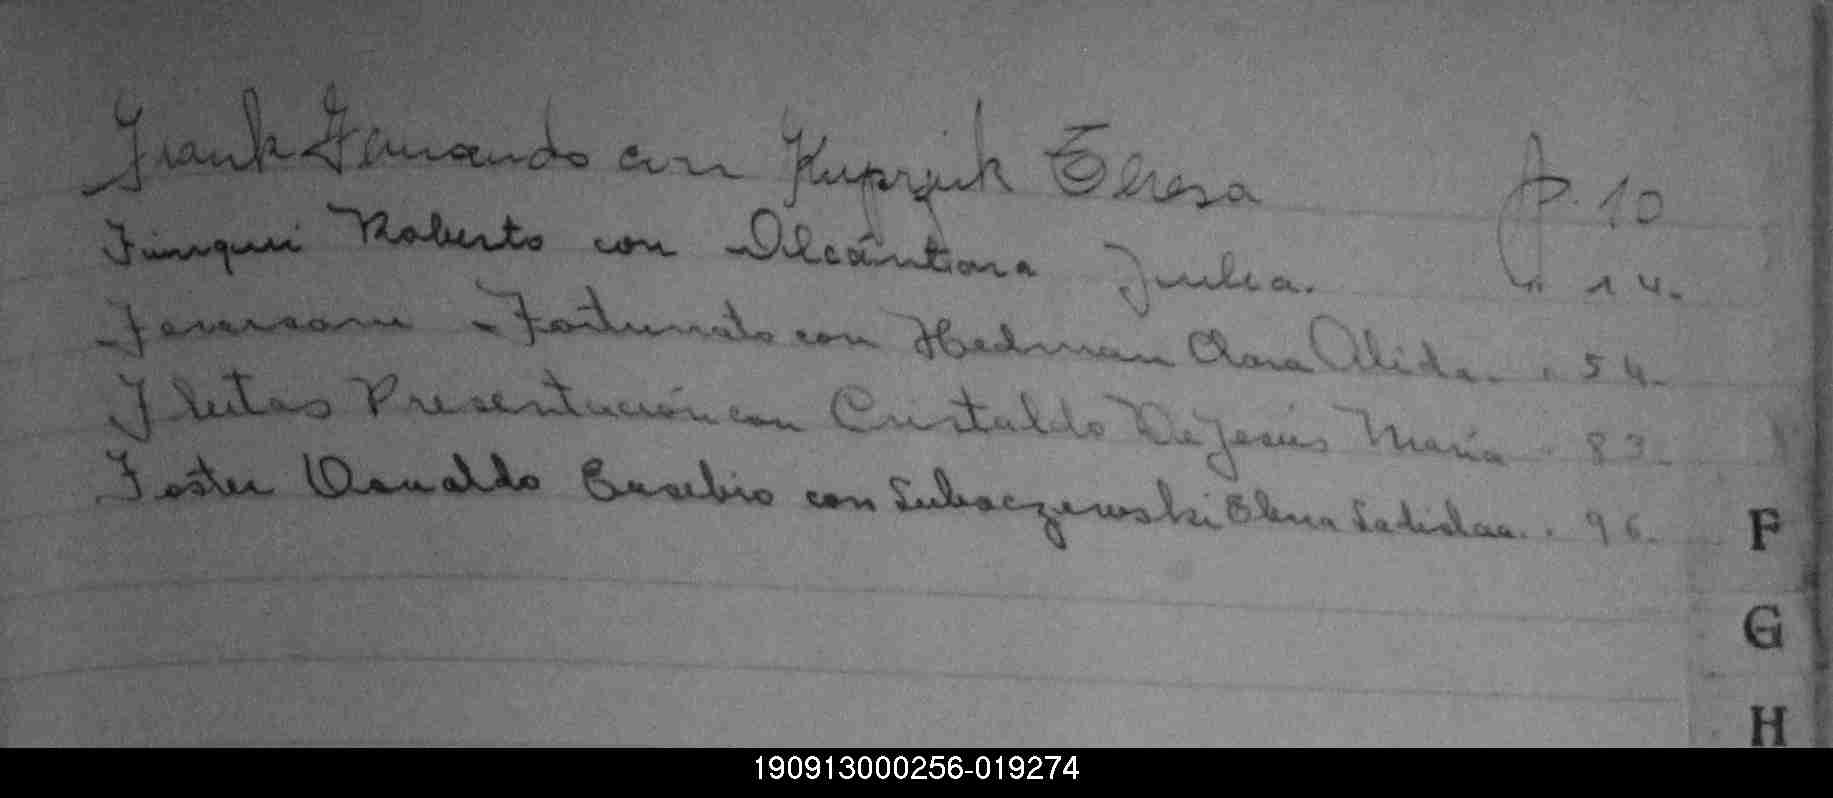 Frank Fernando con Kuprjuk Teresa p. 10
Roberto con Alcántara Julia. " 14.
Fortunato con Hedman Clara Alida. " 54.
Fleitas Presentación con Cristaldo De Jesús María " 83.
Foster Osvaldo Eusebio con Subaczewski Elena Ladislaa. " 96.
F
G
H
190913000256-019274